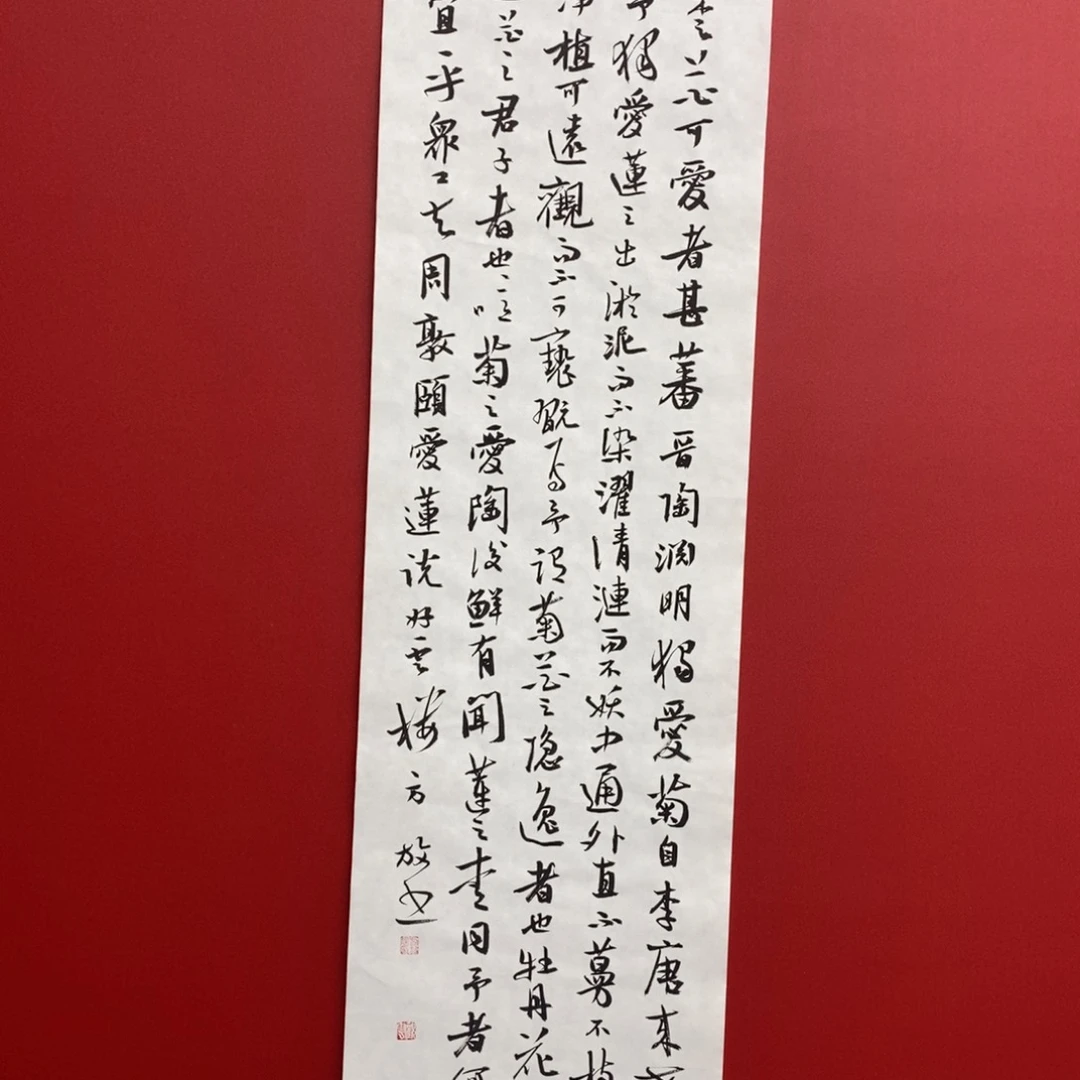 之花可愛者甚蕃晉陶渊明獨愛菊自李唐来
予獨愛蓮之出淤泥而不染濯清漣而不妖中通外直不蔓不枝
淨植可遠觀而不可褻翫焉予謂菊花之隐逸者也牡丹花
花之君子者也噫菊之愛陶後鮮有聞蓮之愛同予者何
宜乎衆矣周敦頤愛蓮説好雲楼方放書